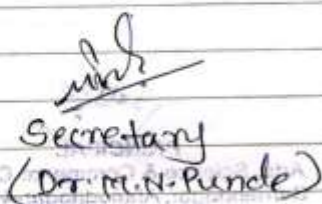 Secretary
(Dr. M. N. Punde)